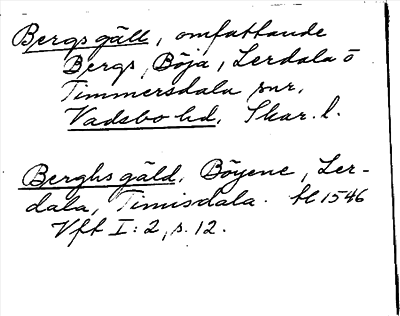 Bergs gäll, omfattande
Bergs, Böja, Lerdala o
Timmersdala snr,
Vadsbo hd, Skar. l.
Berghs gäld, Böyene, Ler-
dala, Timisdala. tl 1546
Vft I:2, s. 12.